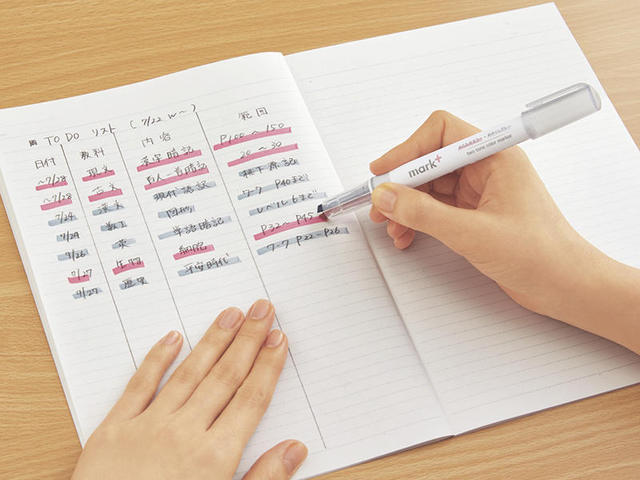 TO DO リスト (7/22 W〜)
日付 教科 内容 範囲
〜7/28 現文 漢字暗記 P100〜150
〜7/28 古文 百人一首暗記 20〜30
7/24 英文 現代語訳
7/24 数I 図形 ワーク P40まで
7/26 英 単語暗記 レベル6まで
7/27 生物 細胞 P32〜P45
7/27 歴史 平安時代 ワーク P22〜P26
mark+
two tone color marker